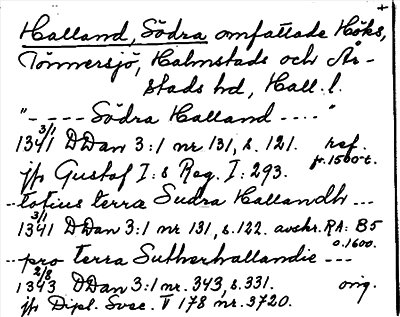 Halland, Södra omfattade Höks,
Tönnersjö, Halmstads och År-
stads hd, Hall. l.
"---- Södra Halland ----"
1341 3/1 DDan 3:1 nr 131, s. 121. ref. fr. 1500-t.
jfr Gustaf I:s Reg. I: 293.
--totius terra Sudra Hallandh ---
1341 3/1 DDan 3:1 nr 131, s. 122. avskr. RA: B5 o. 1600.
--pro terra Sutherhallandie ---
1343 2/8 DDan 3:1 nr. 343, s. 331. orig.
jfr Dipl. Svec. V 178 nr. 3720.